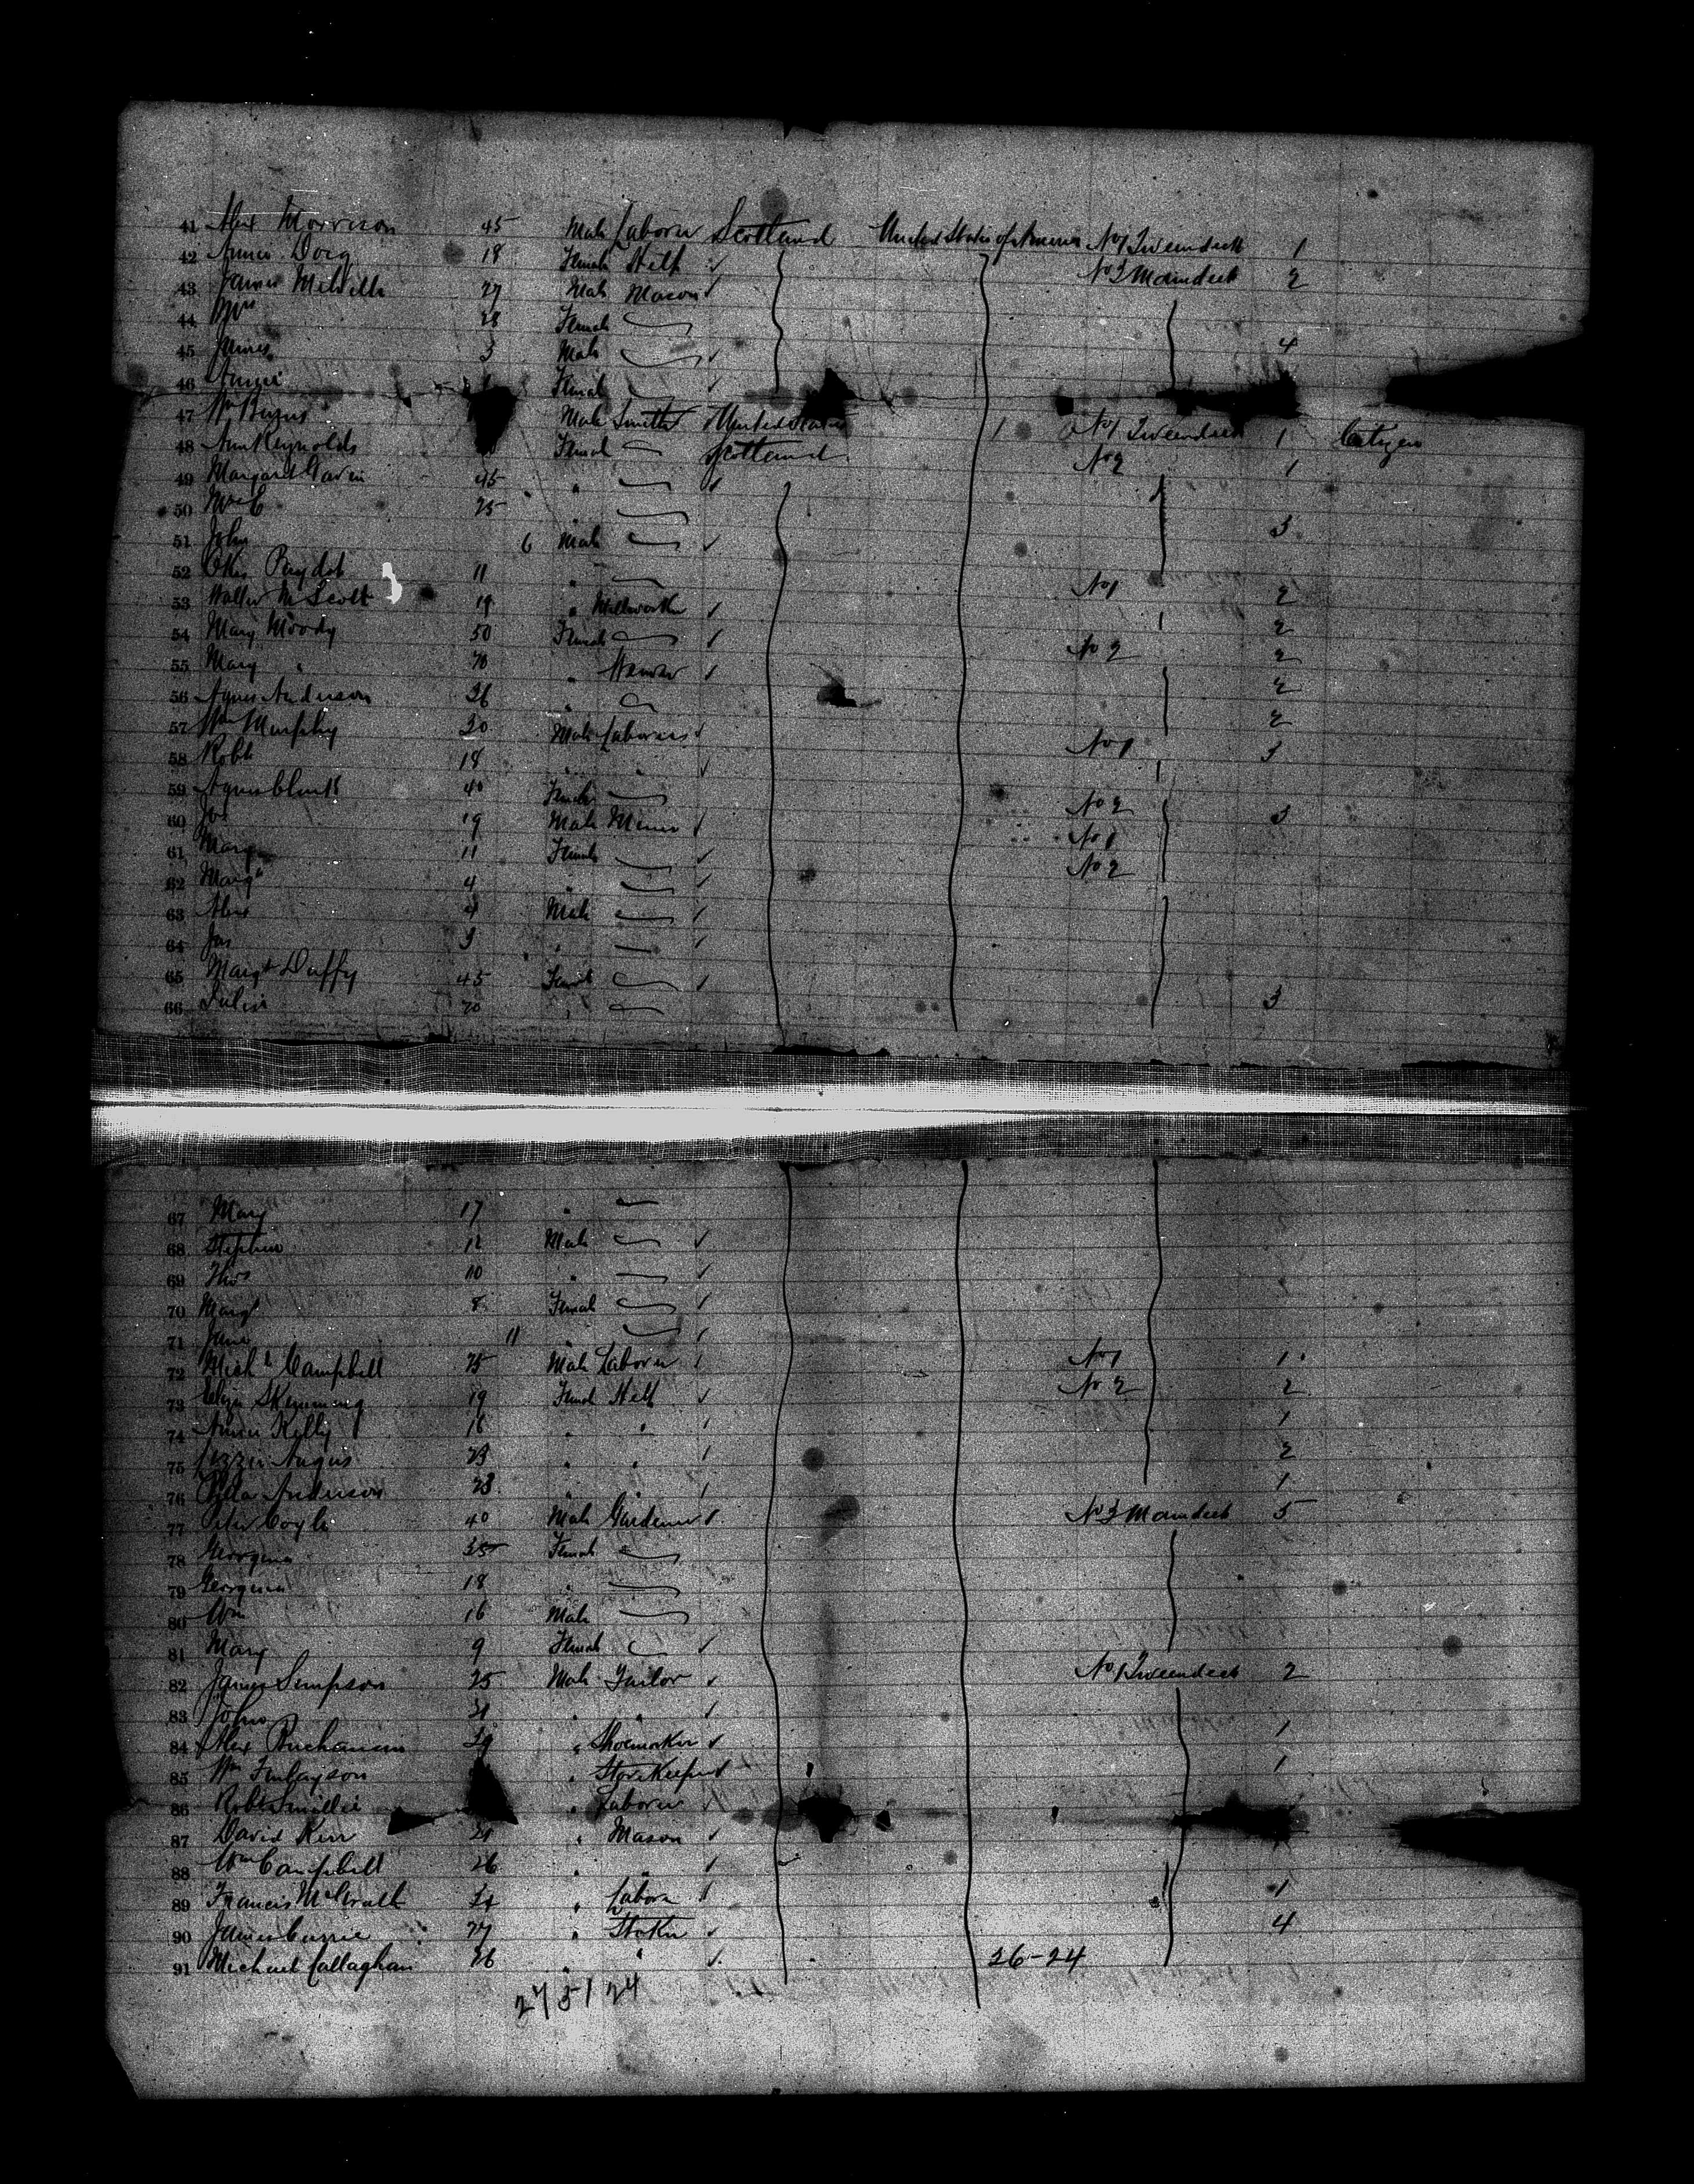 41 Alex Morrison 45 Male Laborer Scotland United States of America No 1 Tweendeck 1
42 Annie Doig 18 Female Help ✓ No 3 Maindeck 2
43 James Melville 27 Male Mason ✓
44 Mrs 28 Female
45 James 3 Male ✓ 4
46 Annie Female ✓
47 Wm Burns Male Smith United States 1 No 1 Tweendeck 1 Citizen
48 Ann Reynolds Female Scotland No 2 1
49 Margaret Gavin 45 " ✓
50 Mrs C 25 "
51 John 6 Male ✓ 3
52 11 " No 1 2
53 Walter M Scott 19 " Millworker ✓ 2
54 Mary Moody 50 Female ✓ No 2 2
55 Mary " " Weaver ✓ 2
56 Agnes Anderson 36 " 2
57 Wm Murphy 30 Male Laborers ✓ No 1 3
58 Robt 18 " " ✓
59 Agnes 40 Female No 2 3
60 Jos 19 Male Miner ✓ No 1
61 Mary 11 Female ✓ No 2
62 Margt 4 " ✓
63 Alex Male ✓
64 Jas 3 " ✓
65 Margt Duffy 45 Female ✓
66 Julia 20 3
67 Mary 17 "
68 Stephen 12 Male ✓
69 Thos 10 " ✓
70 Margt 8 Female ✓
71 Jane 11 " ✓
72 Michl Campbell 25 Male Laborer ✓ No 1 1
73 Eliza Skimming 19 Female Help ✓ No 2 2
74 Annie Kelly 16 " " ✓ 1
75 Lizzie Angus 23 " " ✓ 2
76 Anderson 23 " " ✓ 1
77 Peter Coyle 40 Male Gardener ✓ No 3 Maindeck 5
78 Georgina 35 Female
79 Georgina 18 "
80 Wm 16 Male
81 Mary 9 Female ✓
82 James Simpson 25 Male Tailor ✓ No 1 Tweendeck 2
83 John 21 " " ✓
84 Alex Buchanan " Shoemaker ✓ 1
85 Wm Finlayson " Storekeeper ✓ 1
86 Robt Smillie " Laborer ✓
87 David Kerr 21 " Mason ✓
88 Wm Campbell 26 " " ✓
89 Francis McGrath 24 " Labor ✓ 1
90 James Currie 27 " Stoker ✓ 4
91 Michael Callaghan 26 " " ✓ 26-24
27 51 24